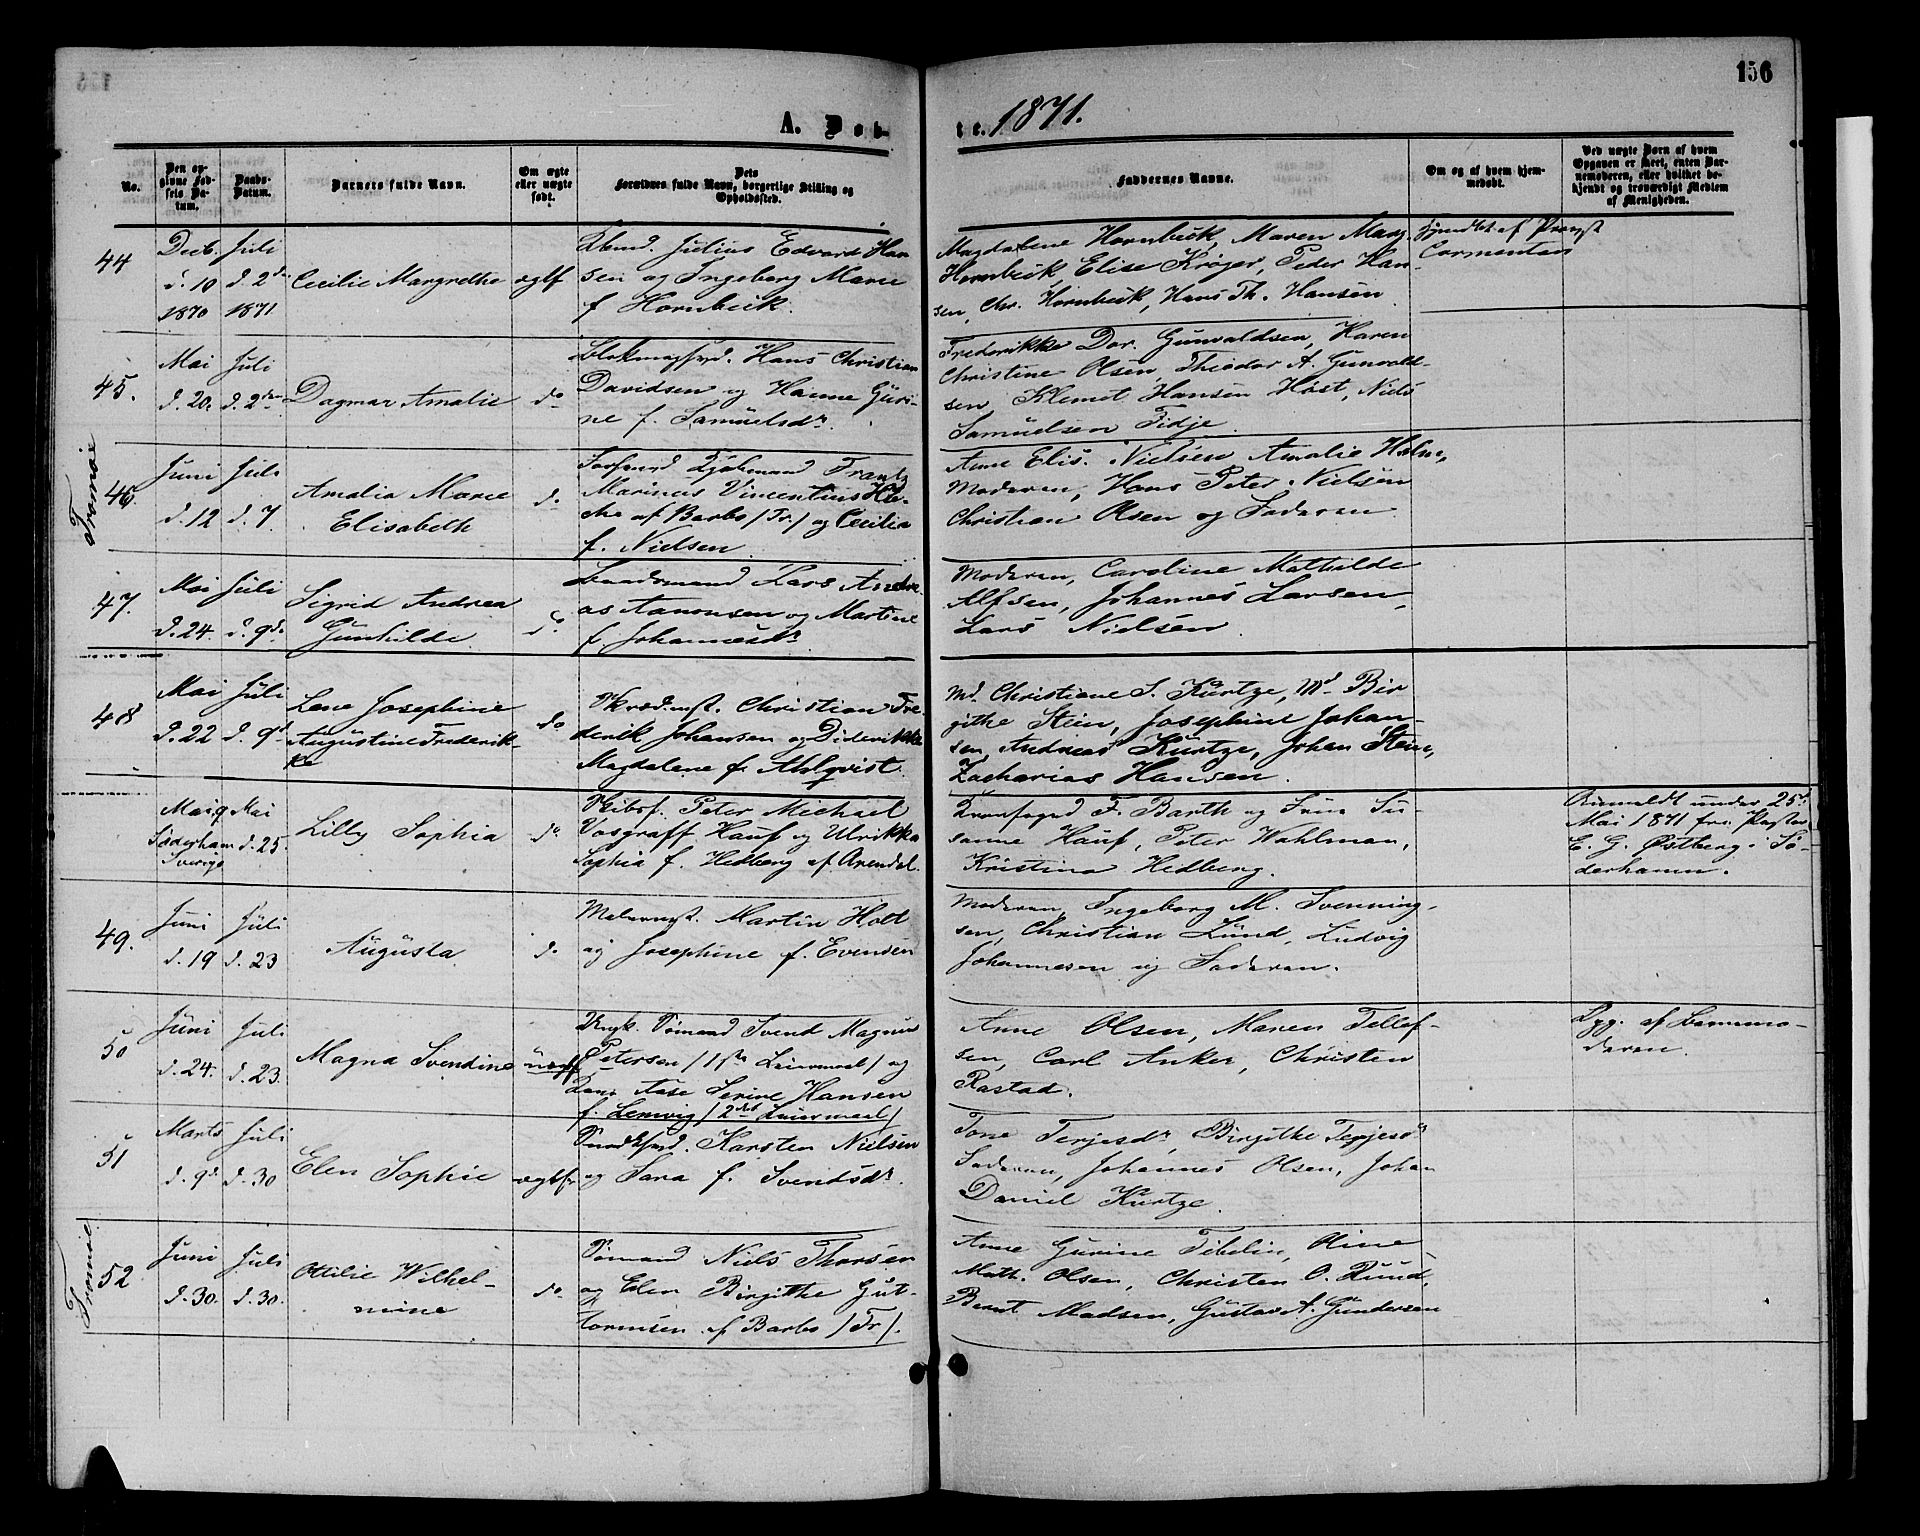 156
A. Døb-
te. 1871.
No.
Den op-
givne Fød-
sels Da-
tum.
Daabs-
Datum.
Barnets fulde Navn.
Om ægte
eller uægte
født.
Dets
Forældres fulde Navn, borgerlige Stilling og
Opholdssted.
Faddernes Navne.
Om og af hvem hjem-
medøbt.
Ved uægte Børn af hvem
Opgaven er skeet, enten Bar-
nemoderen, eller hvilket be-
kjendt og troværdigt Medlem
af Menigheden.
44
Decb.
d. 10
1870
Juli
d. 2den
1871
Cecilie Margrethe
ægtf
Julius Edvard Han
sen og Ingeborg Marie
f Hornbeck.
Magdalene Hornbeck, Maren Marg.
Hornbeck Elise Krøger, Peder Han-
sen, Chr. Hornbeck, Hans Th. Hansen
af Provst
45.
Mai
d. 20.
Juli
d. 2den
Dagmar Amalie
do
Hans Christian
Davidsen og Hanne Guri-
ne f. Samuelsdr.
Frederikke Dor. Gunvaldsen, Karen
Christine Olsen, Theodor A. Gunvald-
sen, Klemet Hansen Høst, Niels
Samuelsen Fidje.
Tromøe
46.
Juni
d. 12
Juli
d. 7.
Amalia Marie
Elisabeth
do.
Frantz
Marinus Vincentius
af Barbo (Tr.) og Cecilia
f. Nielsen
Anne Elis. Nielsen Amalie Holm,
Moderen, Hans Peter Nielsen
Christian Olsen og Faderen
47.
Mai
d. 24.
Juli
d. 9de
Sigrid Andrea
Gunhilde
do.
Baadsmand Lars Andre-
as Aanonsen og Martine
f. Johannesdr
Moderen, Caroline Mathilde
Alfsen, Johannes Larsen,
Lars Nielsen.
48
Mai
d. 22
Juli
d. 9d
Lene Josephine
Augustine Frederik-
ke
do
Skrædmst. Christian Fre-
derik Johansen og Diderikke
Magdalene f. Ahlqvist.
Md. Christiane S. Kurtze, Md. Bir
githe Stein, Josephine Johan-
sen, Andreas Kurtze, Johan Stein,
Zacharias Hansen.
Mai 9
Søderham
Sverige
Mai
d. 25.
Lilly Sophia
do
Skibsf. Peter Michael
Vosgraff Hauf og Ulrikka
Sophia f. Hedberg af Arendal.
F. Barth og Frue Su-
sanne Hauf, Peter Wahlman,
Kristina Hedberg.
Anmeldt under 25d
Mai 1871 fra Pastor
E. G. Østberg i Sø-
derhamn.
49.
Juni
d. 19
Juli
d. 23
Augusta
do.
Malermst. Martin Holt
og Josephine f. Evensen
Moderen, Ingeborg M. Svenning-
sen, Christian Lund, Ludvig
Johannesen og Faderen.
50
Juni
d. 24.
Juli
d. 23.
Magna Svendine
uægte
Ungk. Sømand Svend Magnus
Petersen (1ste Leiermaal) og
Aase Serine Hansen
f. Lemvig (2det Leiermaal)
Anne Olsen, Maren Tellef-
sen, Carl Anker, Christen
Rastad.
Opg. af Barnemo-
deren.
51
Marts
d. 9d.
Juli
d. 30
Elen Sophie
ægtf.
Karsten Nielsen
og Sara f. Svendsdr.
Tone Terjesdr, Birgithe Terjesdr
Faderen, Johannes Olsen, Johan
Daniel Kurtze.
Tromøe
52
Juni
d. 30.
Juli
d. 30.
Ottilie Wilhel-
mine
do
Sømand Niels Thorsen
og Elen Birgithe Gut-
tormsen af Barbo (Tr).
Anne Gurine Fibelin, Oline
Math. Olsen, Christen O. Ruud,
Bernt Madsen, Gustav A. Gundersen